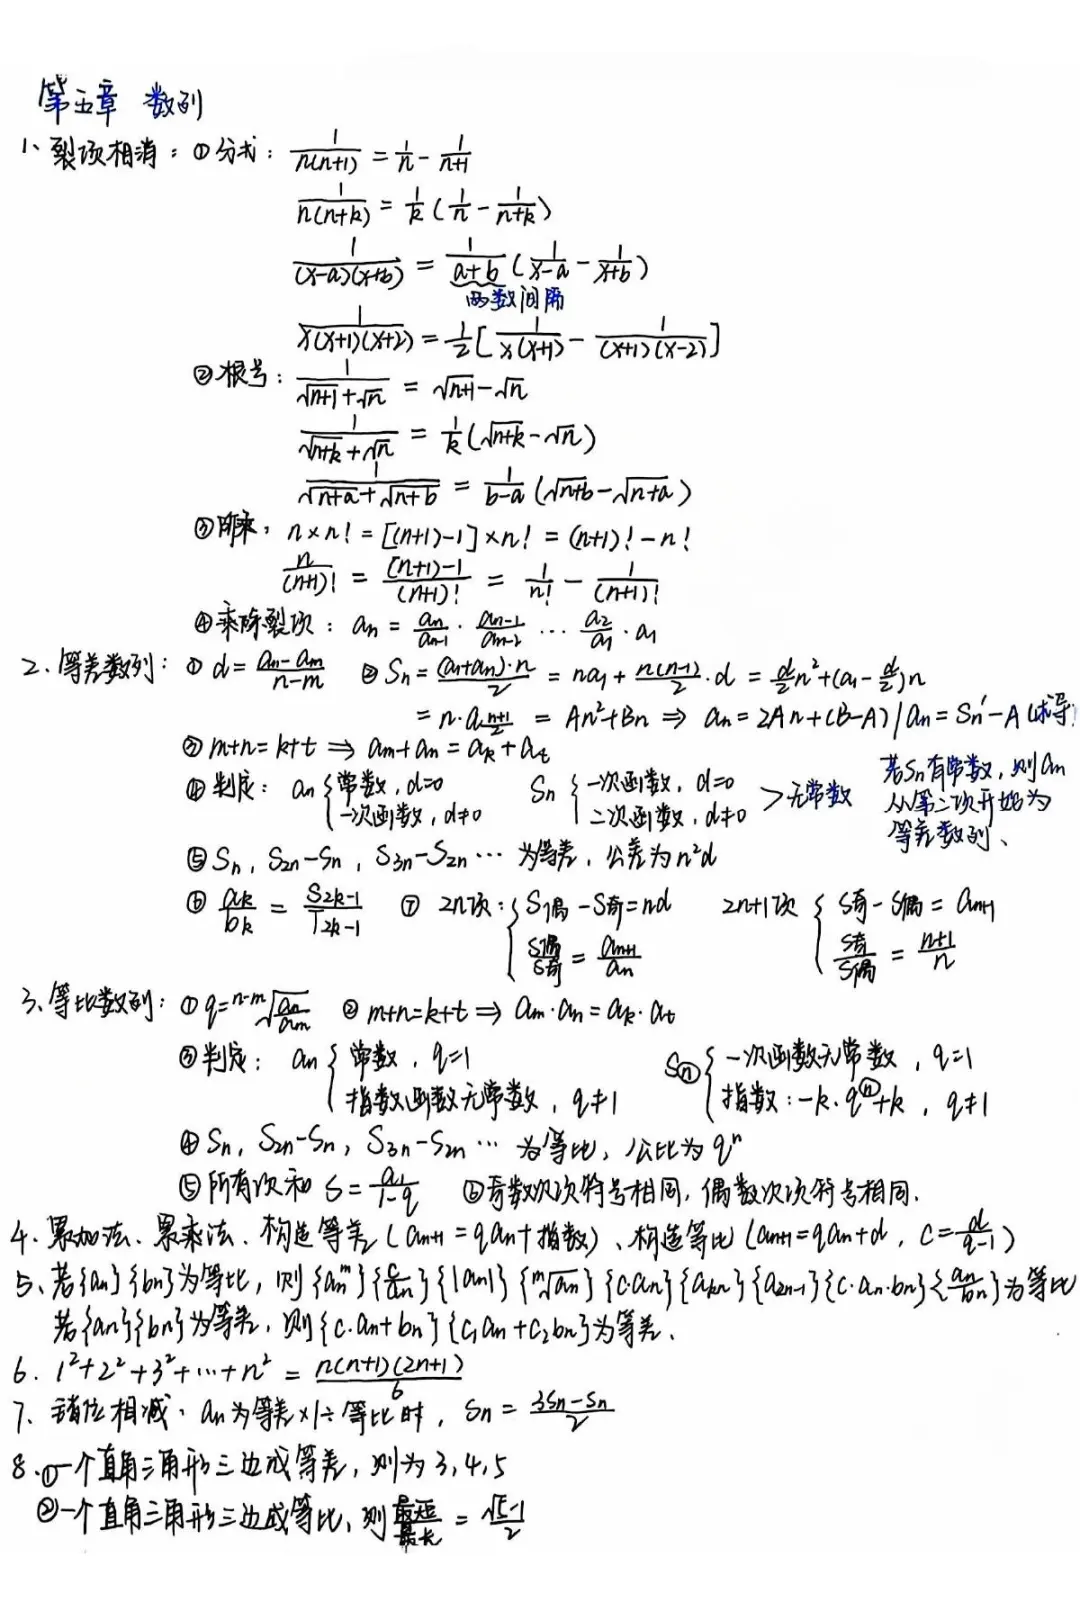 第五章 数列
1、裂项相消：①分式：1/n(n+1) = 1/n - 1/n+1
1/n(n+k) = 1/k (1/n - 1/n+k)
1/(x-a)(x+b) = 1/a+b (1/x-a - 1/x+b)
两数间隔
1/x(x+1)(x+2) = 1/2 [1/x(x+1) - 1/(x+1)(x-2)]
②根号：1/√n+1+√n = √n+1-√n
1/√n+k+√n = 1/k (√n+k-√n)
1/√n+a+√n+b = 1/b-a (√n+b-√n+a)
③阶乘：n×n! = [(n+1)-1]×n! = (n+1)!-n!
n/(n+1)! = (n+1)-1/(n+1)! = 1/n! - 1/(n+1)!
④乘除裂项：an = an/an-1 · an-1/an-2 … a2/a1 · a1
2、等差数列：① d = an-am/n-m ② Sn = (a1+an)·n/2 = na1 + n(n-1)/2 ·d = d/2 n²+(a1-d/2)n
= n·a n+1/2 = An²+Bn ⇒ an = 2An+(B-A) / an = Sn'-A (求导)
③ m+n=k+t ⇒ am+an = ak+at
④ 判定：an { 常数，d=0 Sn { 一次函数，d=0 > 无常数
一次函数，d≠0 二次函数，d≠0
若Sn有常数，则an
从第二项开始为
等差数列、
⑤ Sn，S2n-Sn，S3n-S2n … 为等差，公差为n²d
⑥ ak/bk = S2k-1/T2k-1 ⑦ 2n项：{ S偶-S奇=nd 2n+1项 { S奇-S偶 = an+1
S偶/S奇 = an+1/an S奇/S偶 = n+1/n
3、等比数列：① q = n-m√an/am ② m+n=k+t ⇒ am·an = ak·at
③判定：an { 常数，q=1 Sn { 一次函数无常数，q=1
指数函数无常数，q≠1 指数：-k·qⁿ+k，q≠1
④ Sn，S2n-Sn，S3n-S2n … 为等比，公比为qⁿ
⑤ 所有项和 S = a1/1-q ⑥奇数项项符号相同，偶数项项符号相同.
4、累加法、累乘法、构造等差(an+1 = qan+指数)、构造等比(an+1=qan+d，c=d/q-1)
5、若{an}{bn}为等比，则{an^m}{c/an}{|an|}{m√an}{c·an}{akn}{a2n-1}{c·an·bn}{an/bn}为等比
若{an}{bn}为等差，则{c·an+bn}{c1an+c2bn}为等差、
6. 1²+2²+3²+…+n² = n(n+1)(2n+1)/6
7、错位相减、an为等差×/÷等比时，Sn = 3Sn-Sn/2
8、①一个直角三角形三边成等差，则为3,4,5
②一个直角三角形三边成等比、则最短/最长 = √5-1/2